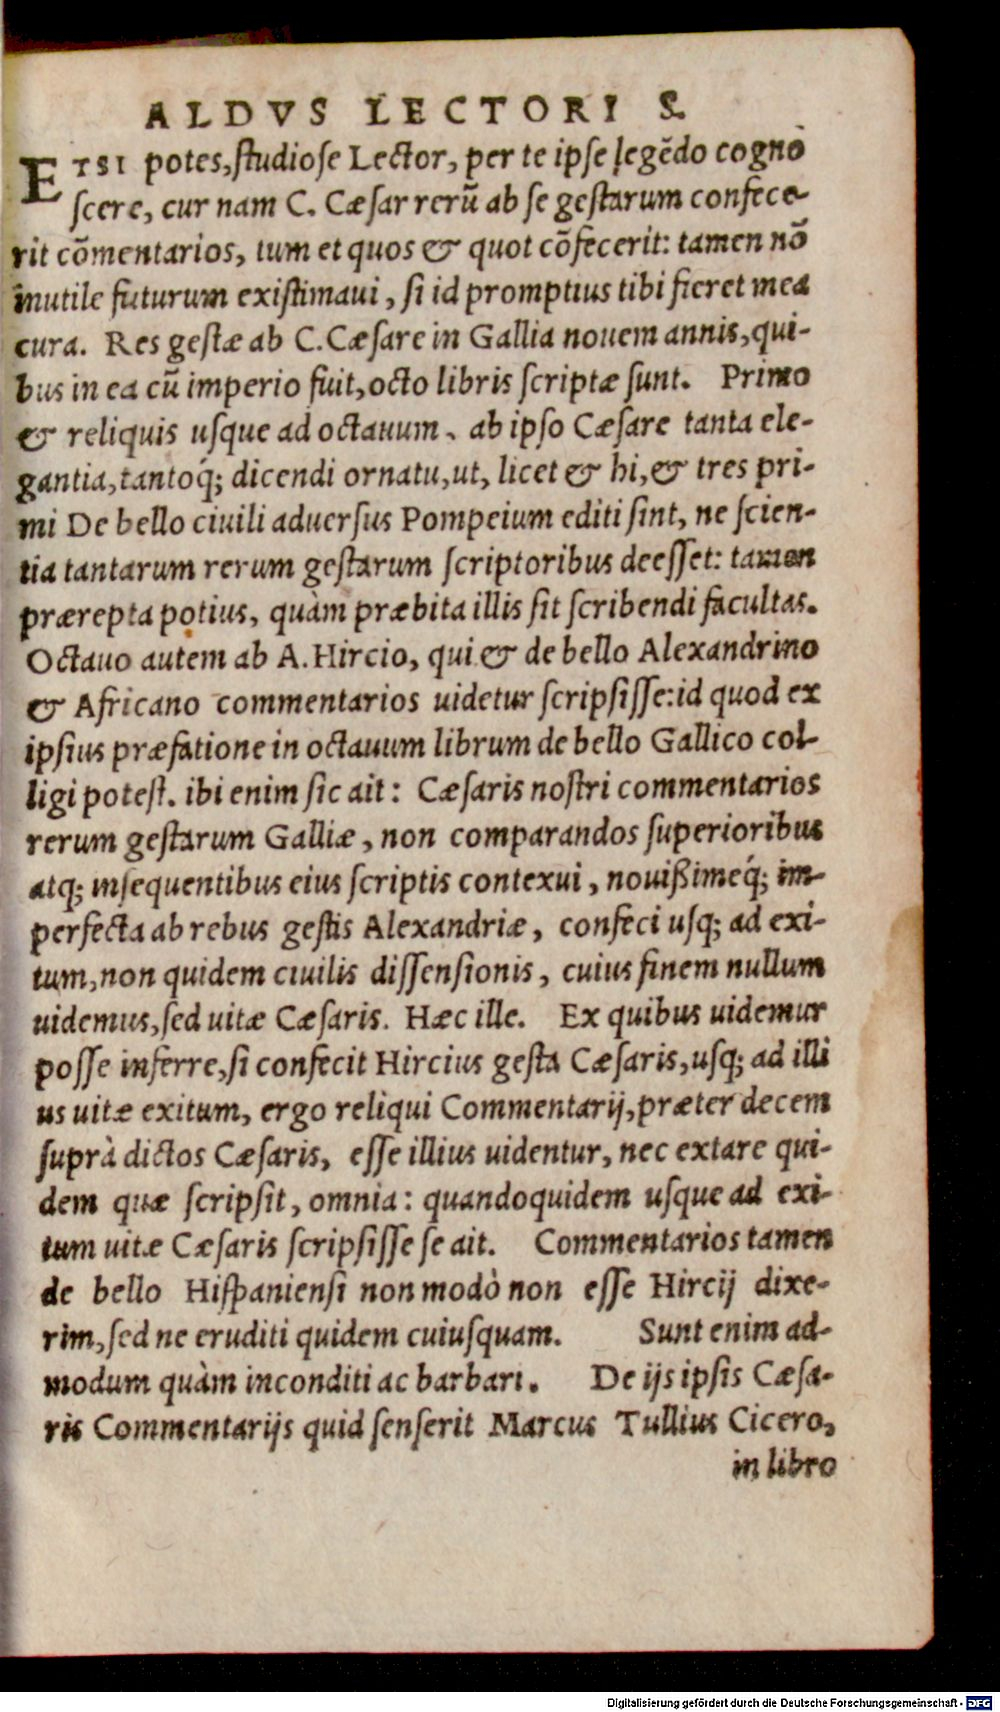 ALDVS LECTORI S.
ETSI potes, ſtudioſe Lector, per te ipſe legẽdo cogno
ſcere, cur nam C. Cæſar rerũ ab ſe geſtarum confece-
rit cõmentarios, tum et quos & quot cõfecerit: tamen nõ
inutile futurum exiſtimaui, ſi id promptius tibi fieret mea
cura. Res geſtæ ab C. Cæſare in Gallia nouem annis, qui-
bus in ea cũ imperio fuit, octo libris ſcriptæ ſunt. Primo
& reliquis uſque ad octauum, ab ipſo Cæſare tanta ele-
gantia, tantoq́; dicendi ornatu, ut, licet & hi, & tres pri-
mi De bello ciuili aduerſus Pompeium editi ſint, ne ſcien-
tia tantarum rerum geſtarum ſcriptoribus deeſſet: tamen
prærepta potius, quàm præbita illis ſit ſcribendi facultas.
Octauo autem ab A. Hircio, qui & de bello Alexandrino
& Africano commentarios uidetur ſcripſiſſe: id quod ex
ipſius præfatione in octauum librum de bello Gallico col-
ligi poteſt. ibi enim ſic ait: Cæſaris noſtri commentarios
rerum geſtarum Galliæ, non comparandos ſuperioribus
atq; inſequentibus eius ſcriptis contexui, nouißimeq́; im-
perfecta ab rebus geſtis Alexandriæ, confeci uſq; ad exi-
tum, non quidem ciuilis diſſenſionis, cuius finem nullum
uidemus, ſed uitæ Cæſaris. Hæc ille. Ex quibus uidemur
poſſe inferre, ſi confecit Hircius geſta Cæſaris, uſq; ad illi
us uitæ exitum, ergo reliqui Commentarij, præter decem
ſuprà dictos Cæſaris, eſſe illius uidentur, nec extare qui-
dem quæ ſcripſit, omnia: quandoquidem uſque ad exi-
tum uitæ Cæſaris ſcripſiſſe ſe ait. Commentarios tamen
de bello Hiſpanienſi non modò non eſſe Hircij dixe-
rim, ſed ne eruditi quidem cuiuſquam. Sunt enim ad-
modum quàm inconditi ac barbari. De ijs ipſis Cæſa-
ris Commentarijs quid ſenſerit Marcus Tullius Cicero,
in libro
Digitalisierung gefördert durch die Deutsche Forschungsgemeinschaft - DFG